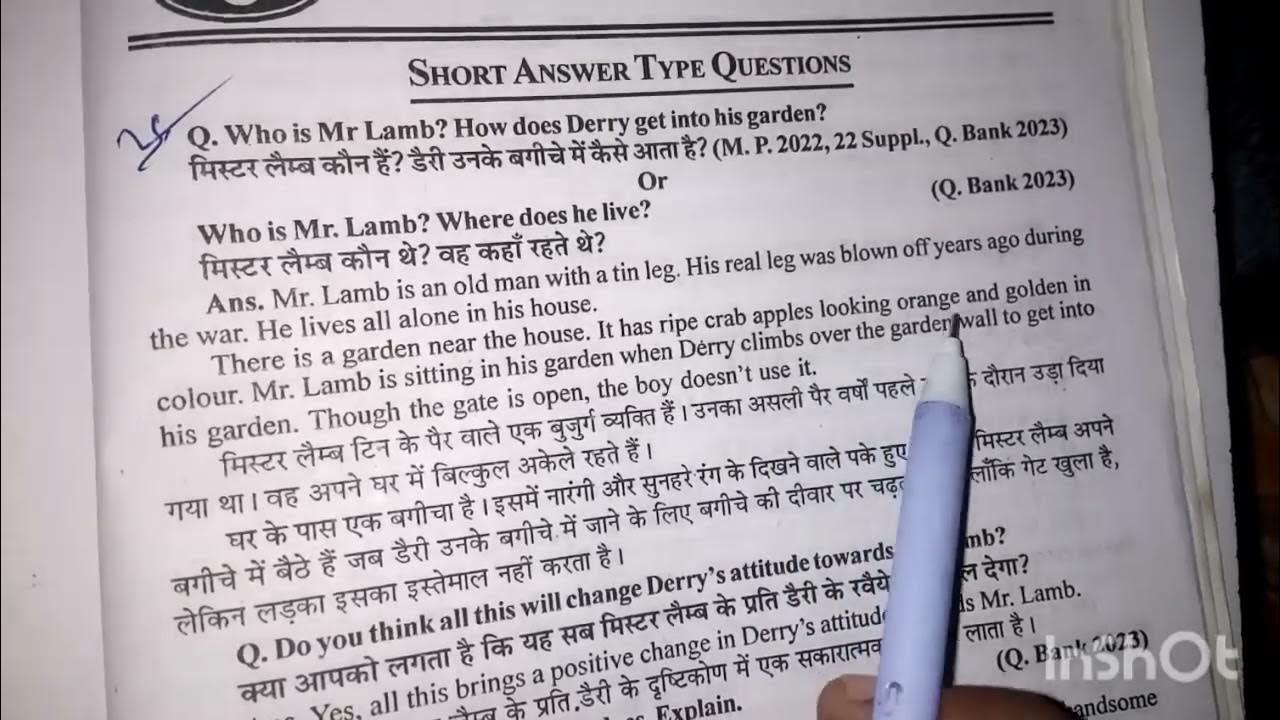 SHORT ANSWER TYPE QUESTIONS
Q. Who is Mr Lamb? How does Derry get into his garden?
मिस्टर लैम्ब कौन हैं? डैरी उनके बगीचे में कैसे आता है? (M. P. 2022, 22 Suppl., Q. Bank 2023)
Or
Who is Mr. Lamb? Where does he live? (Q. Bank 2023)
मिस्टर लैम्ब कौन थे? वह कहाँ रहते थे?
Ans. Mr. Lamb is an old man with a tin leg. His real leg was blown off years ago during
the war. He lives all alone in his house.
There is a garden near the house. It has ripe crab apples looking orange and golden in
colour. Mr. Lamb is sitting in his garden when Derry climbs over the garden wall to get into
his garden. Though the gate is open, the boy doesn't use it.
मिस्टर लैम्ब टिन के पैर वाले एक बुजुर्ग व्यक्ति हैं। उनका असली पैर वर्षों पहले के दौरान उड़ा दिया
गया था। वह अपने घर में बिल्कुल अकेले रहते हैं।
घर के पास एक बगीचा है। इसमें नारंगी और सुनहरे रंग के दिखने वाले पके हुए मिस्टर लैम्ब अपने
बगीचे में बैठे हैं जब डैरी उनके बगीचे में जाने के लिए बगीचे की दीवार पर गेट खुला है,
लेकिन लड़का इसका इस्तेमाल नहीं करता है।
Q. Do you think all this will change Derry's attitude towards
क्या आपको लगता है कि यह सब मिस्टर लैम्ब के प्रति डैरी के रवैये देगा?
Yes, all this brings a positive change in Derry's Mr. Lamb.
के प्रति डैरी के दृष्टिकोण में एक लाता है।
(Q. Bank 2023)
Explain.
InshOt